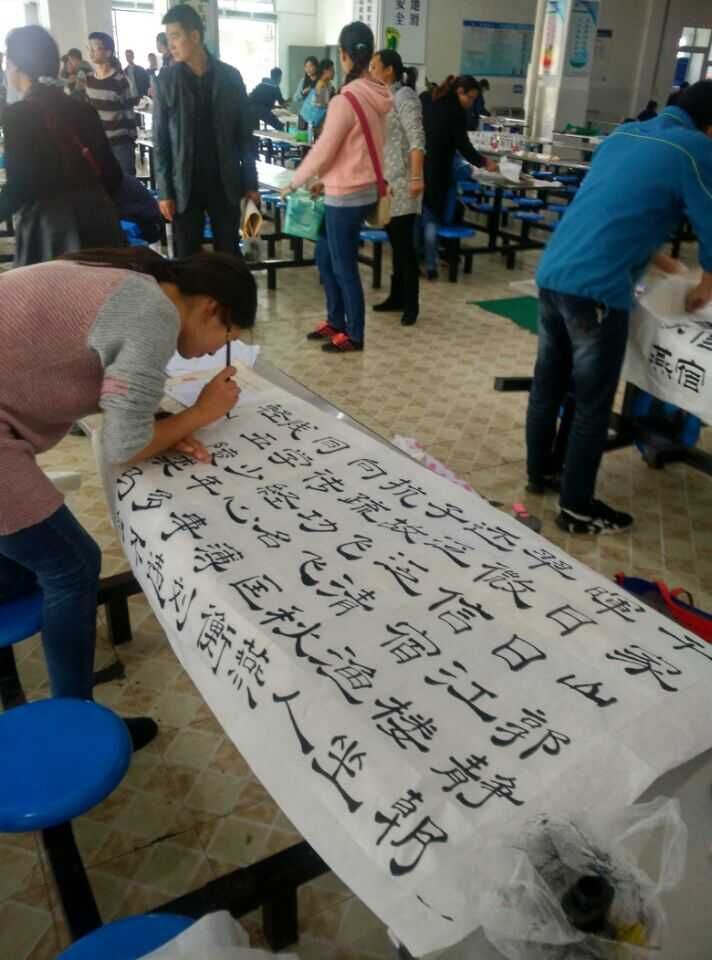 千家山郭静朝
晖日日江楼坐
翠微信宿渔人
还泛泛清秋燕
子故飞飞匡衡
抗疏功名薄刘
向传经心事违
同学少年多不
贱五陵衣马
轻
地滑
安全
燕宿